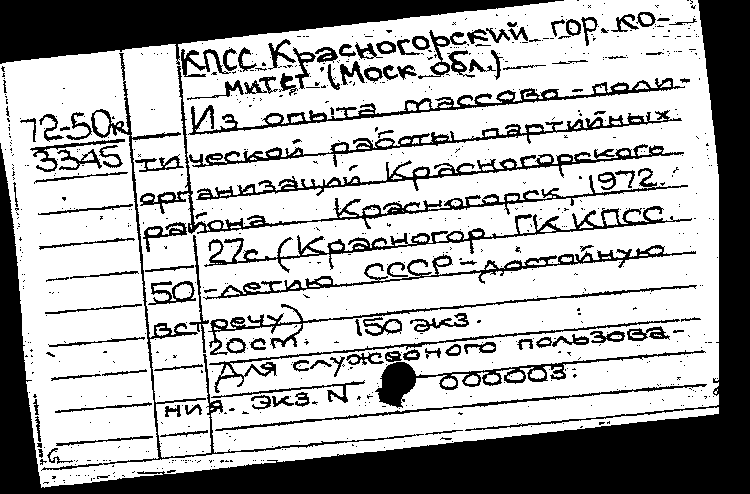 КПСС. Красногорский гор. ко-
митет. (Моск. обл.)
72-50к
3345
Из опыта массово-поли-
тической работы партийных
организаций Красногорского
района. Красногорск, 1972.
27с. (Красногор. ГК КПСС.
50-летию СССР-достойную
встречу)
20cm. 150 экз.
Для служебного пользова-
ния. Экз. N 000003.